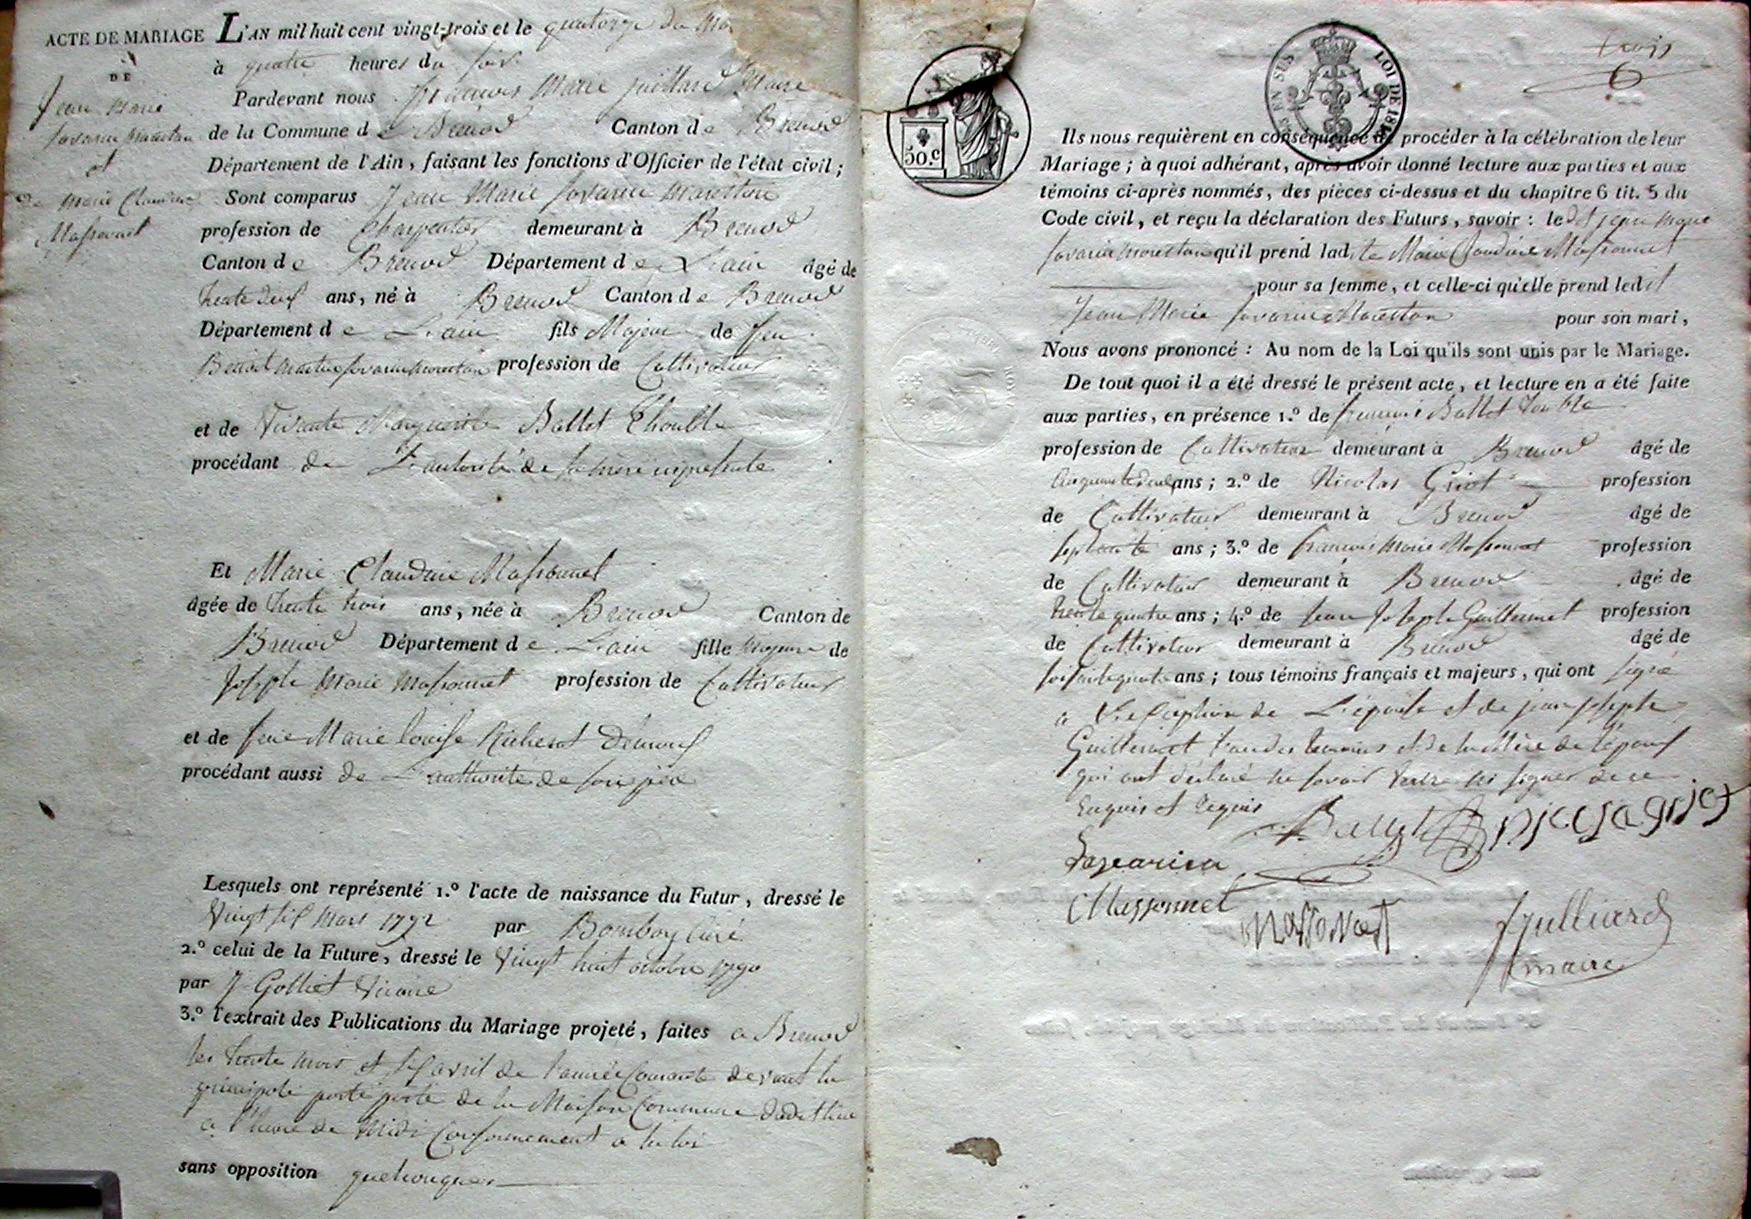 ACTE DE MARIAGE
DE
Jean Marie
Savarin Marestan
et
de Marie Claudine
Massonnet
L'AN mil huit cent vingt-trois et le quatorze du
à quatre heures du soir
Pardevant nous François Marie Juilliard Maire
de la Commune de Brenod Canton de Brenod
Département de l'Ain, faisant les fonctions d'Officier de l'état civil;
Sont comparus Jean Marie Savarin Marestan
profession de Charpentier demeurant à Brenod
Canton de Brenod Département de L'ain âgé de
ans, né à Brenod Canton de Brenod
Département de L'ain fils Majeur de feu
Benoit Savarin Marestan profession de Cultivateur
et de Vivante Marguerite Ballet
procédant de L'autorité de sa mère
Et Marie Claudine Massonnet
âgée de trente trois ans, née à Brenod Canton de
Brenod Département de L'ain fille Majeure de
Joseph Marie Massonnet profession de Cultivateur
et de feue Marie Louise Richerot
procédant aussi de L'authorité de son père
Lesquels ont représenté 1.° l'acte de naissance du Futur, dressé le
Vingt six Mars 1792 par Bomboy Curé
2.° celui de la Future, dressé le Vingt huit octobre 1790
par J Golliet Vicaire
3.° l'extrait des Publications du Mariage projeté, faites a Brenod
les trente mars et six avril de l'année Courante devant la
principale porte de la Maison Commune dudit lieu
a l'heure de Midi Conformement a la loi
sans opposition quelconques
50.c
EN SUS
LOI DE 18
trois
Ils nous requièrent en conséquence de procéder à la célébration de leur
Mariage; à quoi adhérant, après avoir donné lecture aux parties et aux
témoins ci-après nommés, des pièces ci-dessus et du chapitre 6 tit. 5 du
Code civil, et reçu la déclaration des Futurs, savoir: le dit jean marie
Savarin Marestan qu'il prend ladite Marie Claudine Massonnet
pour sa femme, et celle-ci qu'elle prend ledit
Jean Marie Savarin Marestan pour son mari,
Nous avons prononcé: Au nom de la Loi qu'ils sont unis par le Mariage.
De tout quoi il a été dressé le présent acte, et lecture en a été faite
aux parties, en présence 1.° de françois Ballet
profession de Cultivateur demeurant à Brenod âgé de
ans; 2.° de Nicolas Griot profession
de Cultivateur demeurant à Brenod âgé de
septante ans; 3.° de françois Marie Massonnet profession
de Cultivateur demeurant à Brenod âgé de
trente quatre ans; 4.° de Jean Joseph Guillermet profession
de Cultivateur demeurant à Brenod âgé de
soissante quatre ans; tous témoins français et majeurs, qui ont signé
a L'exception de L'épouse et de jean joseph
Guillermet l'un des temoins et de la Mère de l'époux
qui ont déclaré ne savoir écrire ni signer de ce
Enquis et requis
Ballet
nicolas griot
Savarin
Massonnet
Massonnet
Juilliard
maire
sans opposition